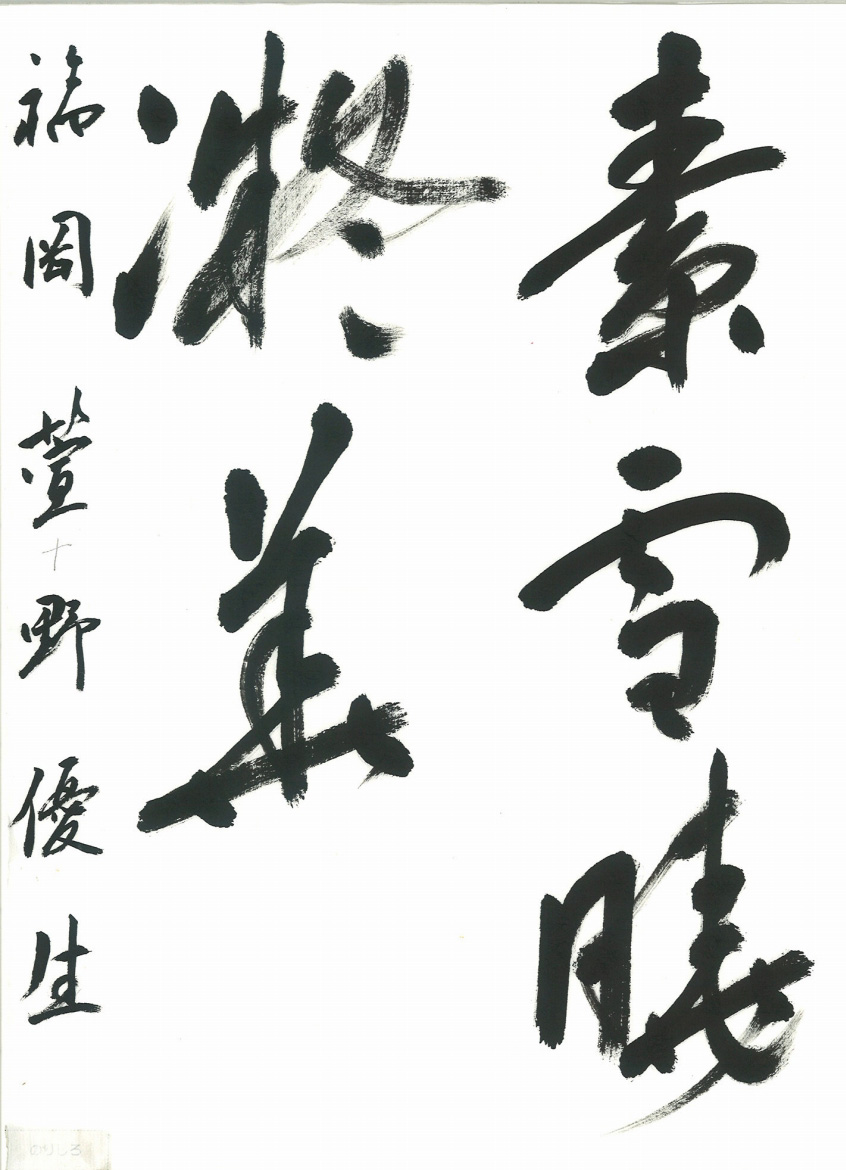 素雪暁
凝華
福岡 萱十野優生
のりしろ